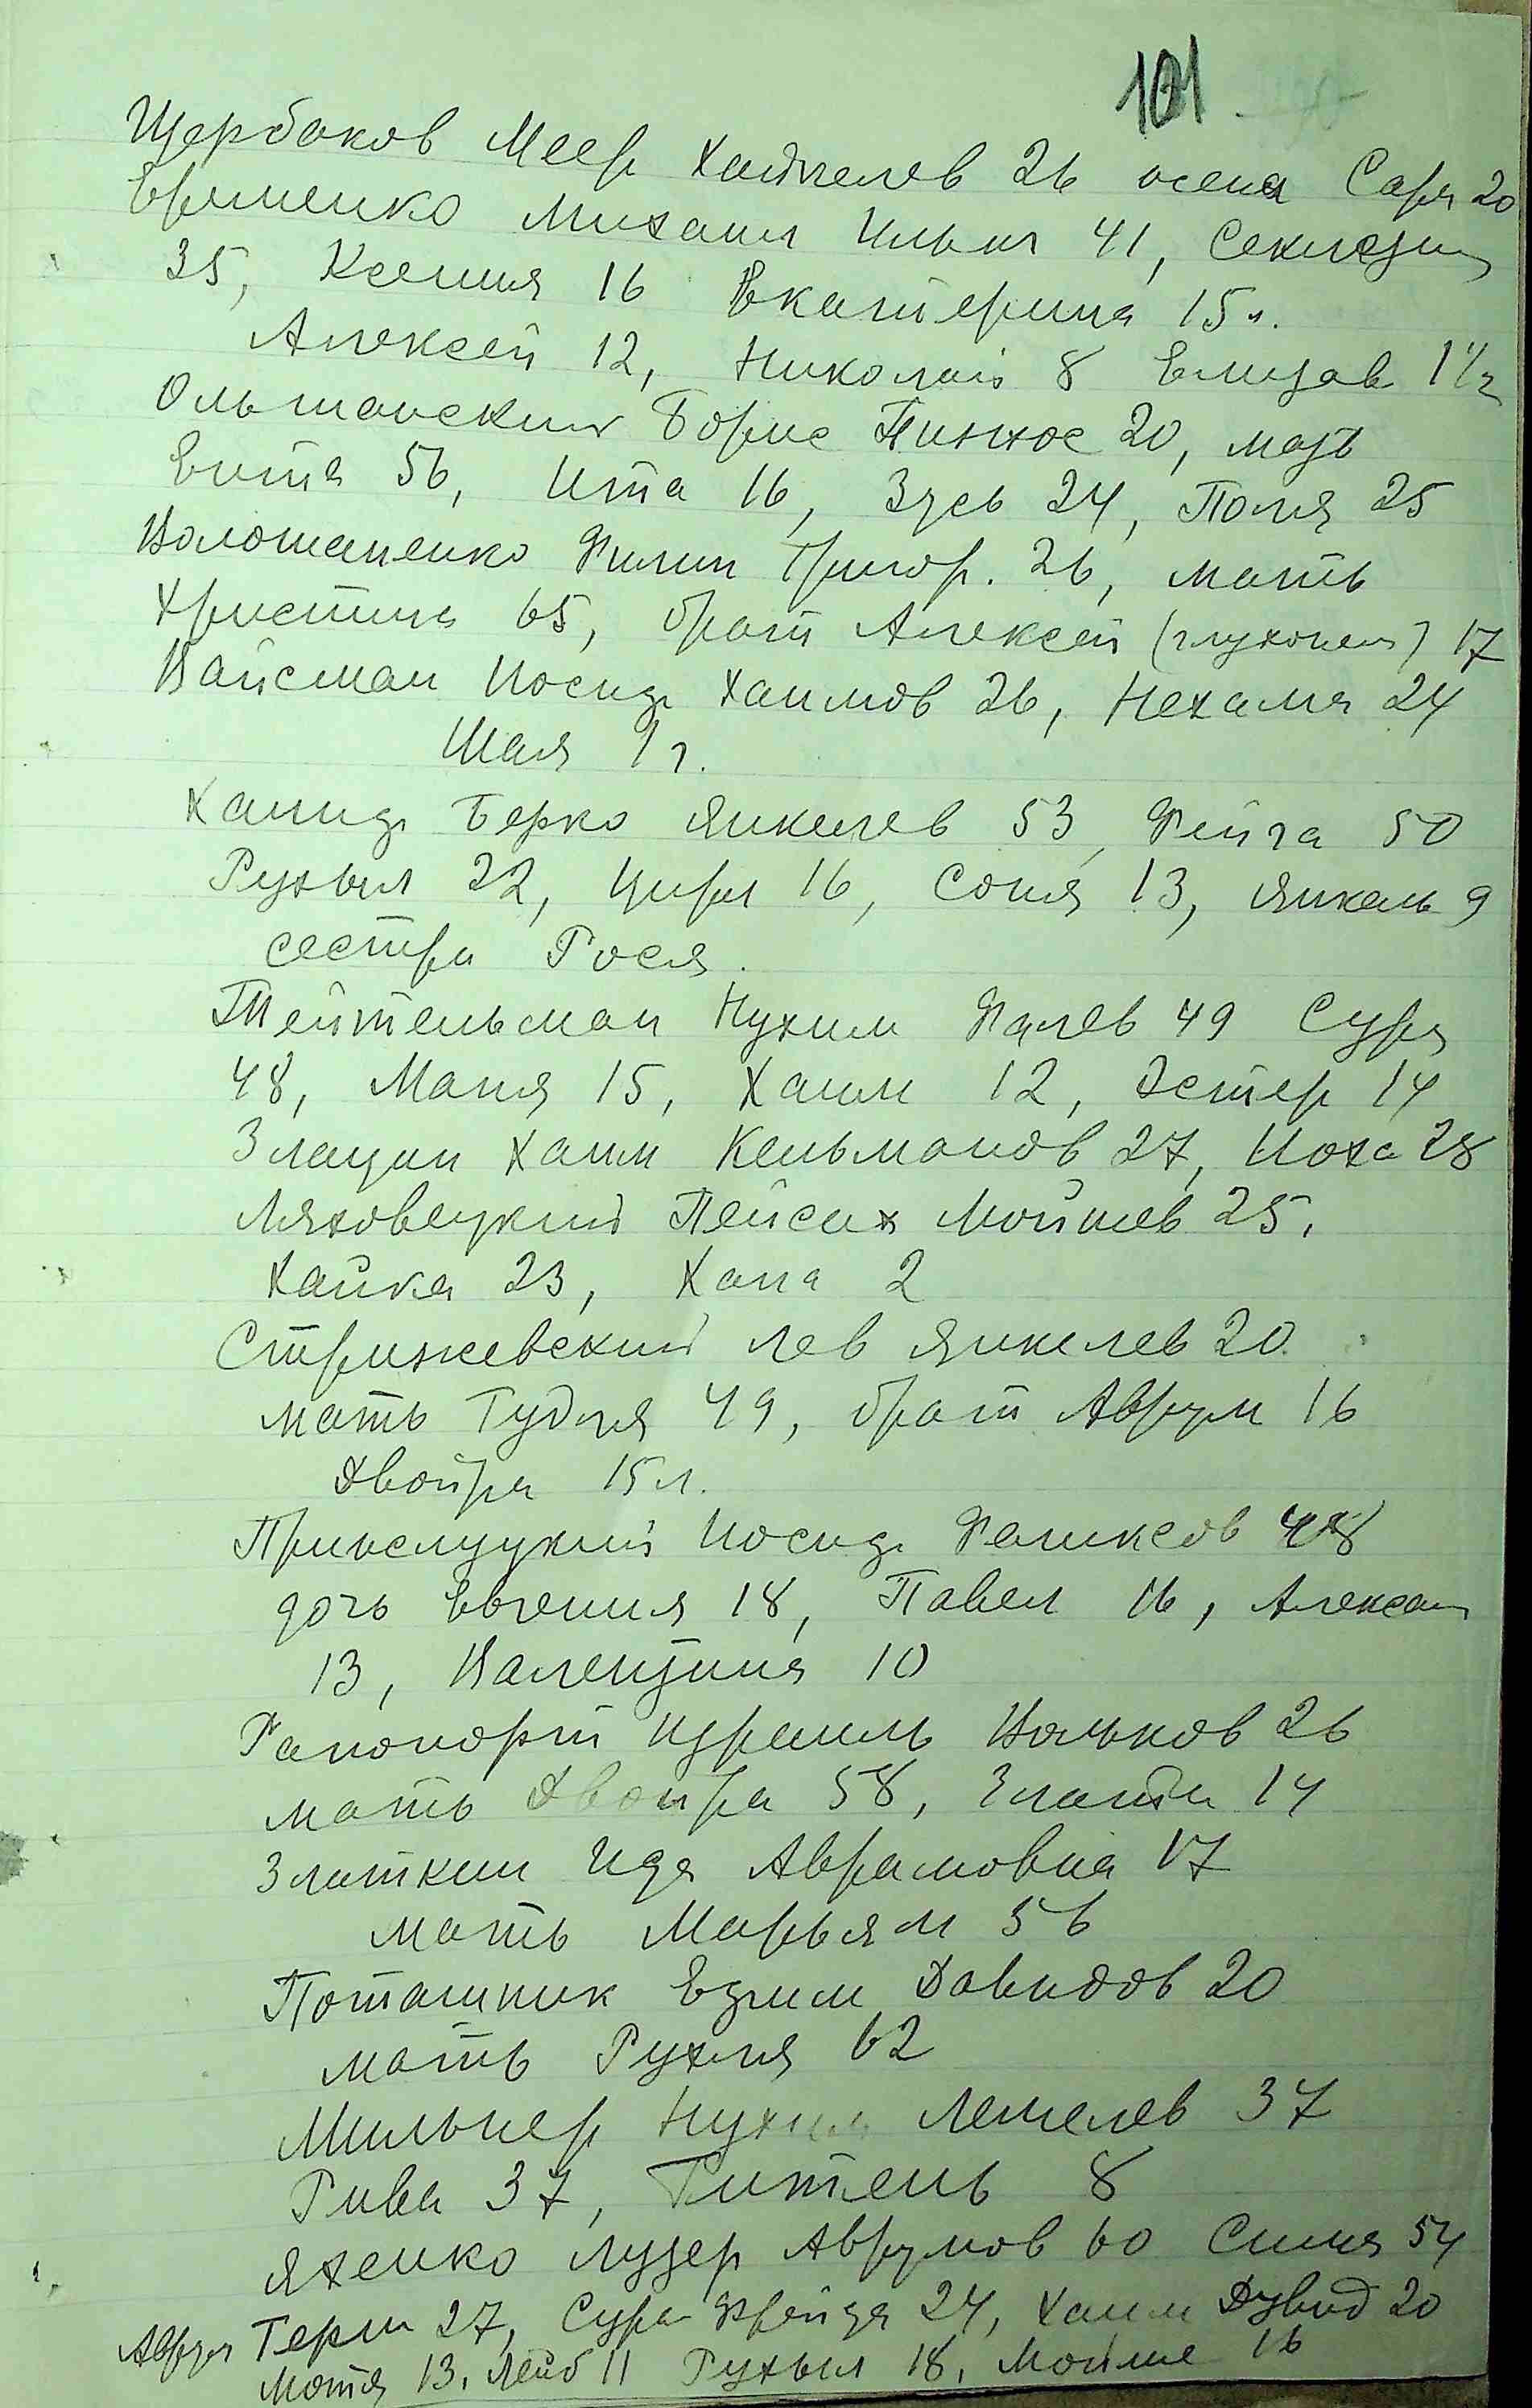 101
Щербаков Меер Хайкелев 26 жена Сара 20
Ефименко Михаил Ильич 41,
35, Ксения 16 Екатерина 15 л.
Алексей 12, Николай 8 Елизав 1 1/2
Ольшанский Борис Пинхос 20, мать
56, Ита 16, Зусь 24, Поля 25
Волошаненко Филип Григор. 26, мать
Христина 65, брат Алексей (глухонем) 17
Вайсман Иосиф Хаимов 26, Нехама 24
Шая 1 г.
Берко Янкелев 53, Фейга 50
Рухыл 22, 16, Соня 13, Янкель 9
сестра Рося.
Тейтельман Нухим 49 Сура
48, Маня 15, Хаим 12, Эстер 14
Хаим Кельманов 27, Иоха 28
Ляховецкий Пейсах Мойшев 25,
Хайка 23, Хана 2
Стрижевский Лев Янкелев 20
мать Гудля 49, брат Аврум 16
Двойра 15 л.
Прилуцкий Иосиф Феликсов 48
дочь Евгения 18, Павел 16, Алексан
13, Валентина 10
Рапопорт Израиль Вольков 26
мать Двойра 58, Злата 14
Златкин Ида Аврамовна 17
мать Марьям 56
Поташник Ефим Давидов 20
мать Рухля 62
Мильнер Нухим Лейзелев 37
Рива 37, 8
Яхенко Лузер Аврумов 60 Симя 54
Аврум Герш 27, Сура Фрейда 24, Хаим Дувид 20
Мотя 13, Лейб 11 Рухыл 18, Мойше 16